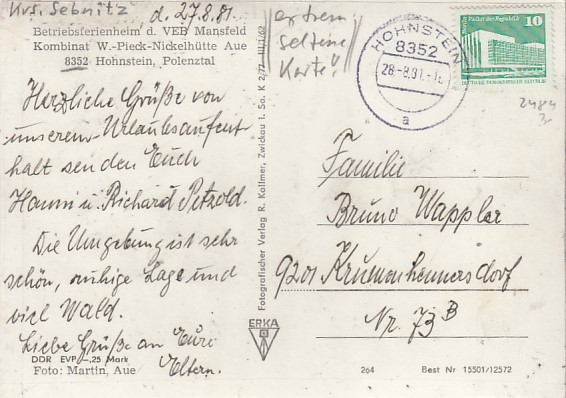 Krs. Sebnitz
d. 27.8.81.
Betriebsferienheim d. VEB Mansfeld
Kombinat W.-Pieck-Nickelhütte Aue
8352 Hohnstein, Polenztal
extrem
seltene
Karte!
HOHNSTEIN
8352
28.-8.81.-18
a
Palast der Republik 10
DEUTSCHE DEMOKRATISCHE REPUBLIK
2484
Herzliche Grüße von
unserem Urlaubsaufent
halt senden Euch
Hanni u. Richard Petzold.
Die Umgebung ist sehr
schön, ruhige Lage und
viel Wald.
Liebe Grüße an Euri
Eltern.
DDR EVP -,25 Mark
Foto: Martin, Aue
Fotografischer Verlag R. Kallmer, Zwickau i. Sa. K 2/77 III/1/62
ERKA
Familie
Bruno Wappler
9201 Krummenhennersdorf
Nr. 73 B
264
Best Nr 15501/12572